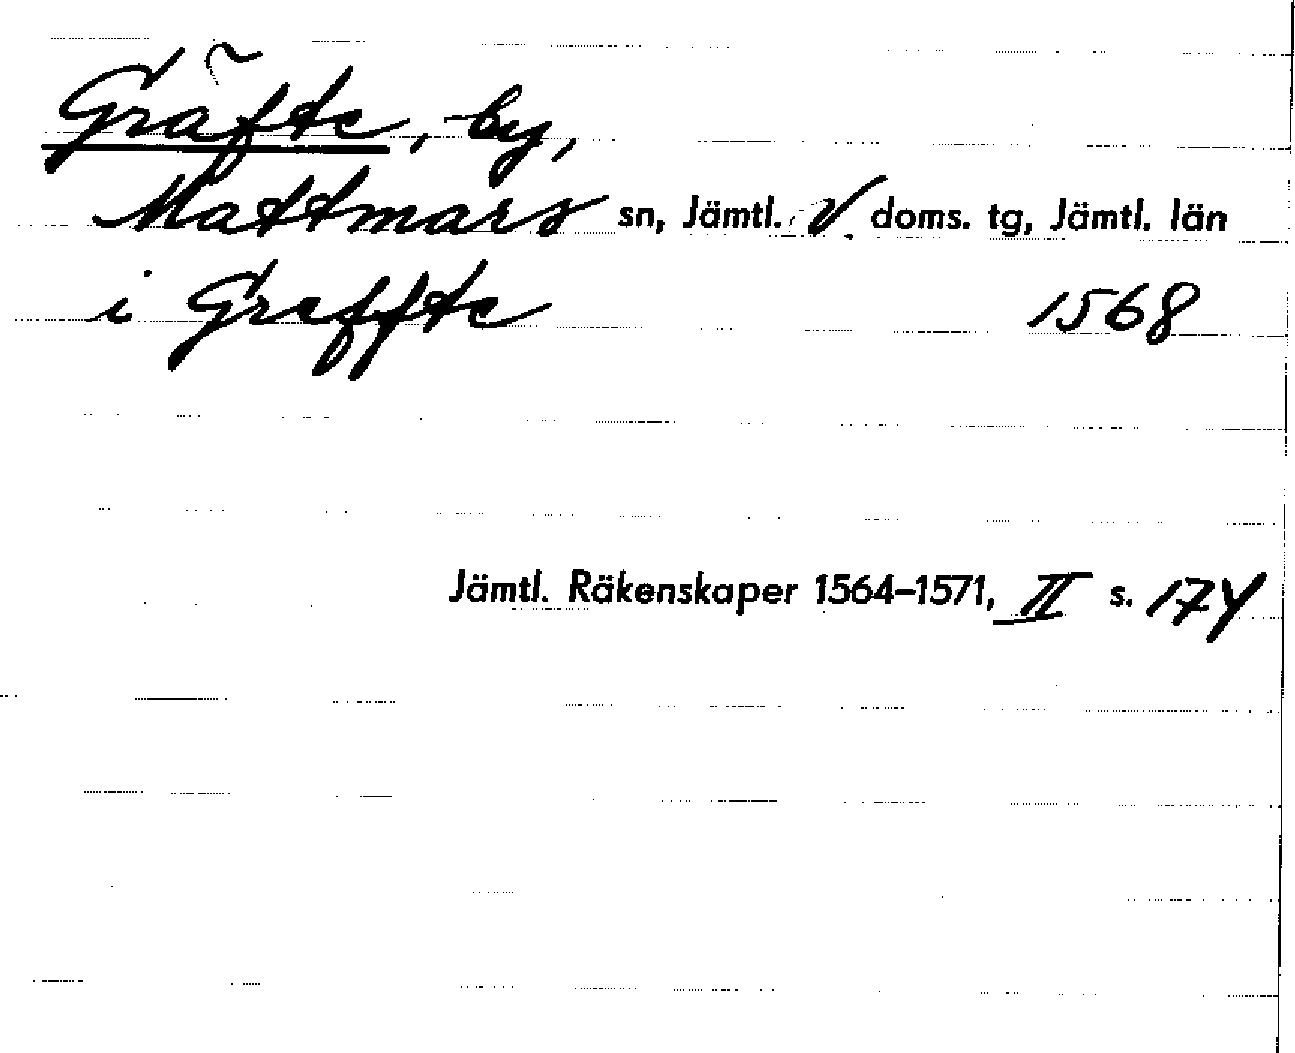 Gräfte, by,
Mattmars sn, Jämtl. v. doms. tg, Jämtl. län
i Greffte 1568
Jämtl. Räkenskaper 1564–1571, II s. 174